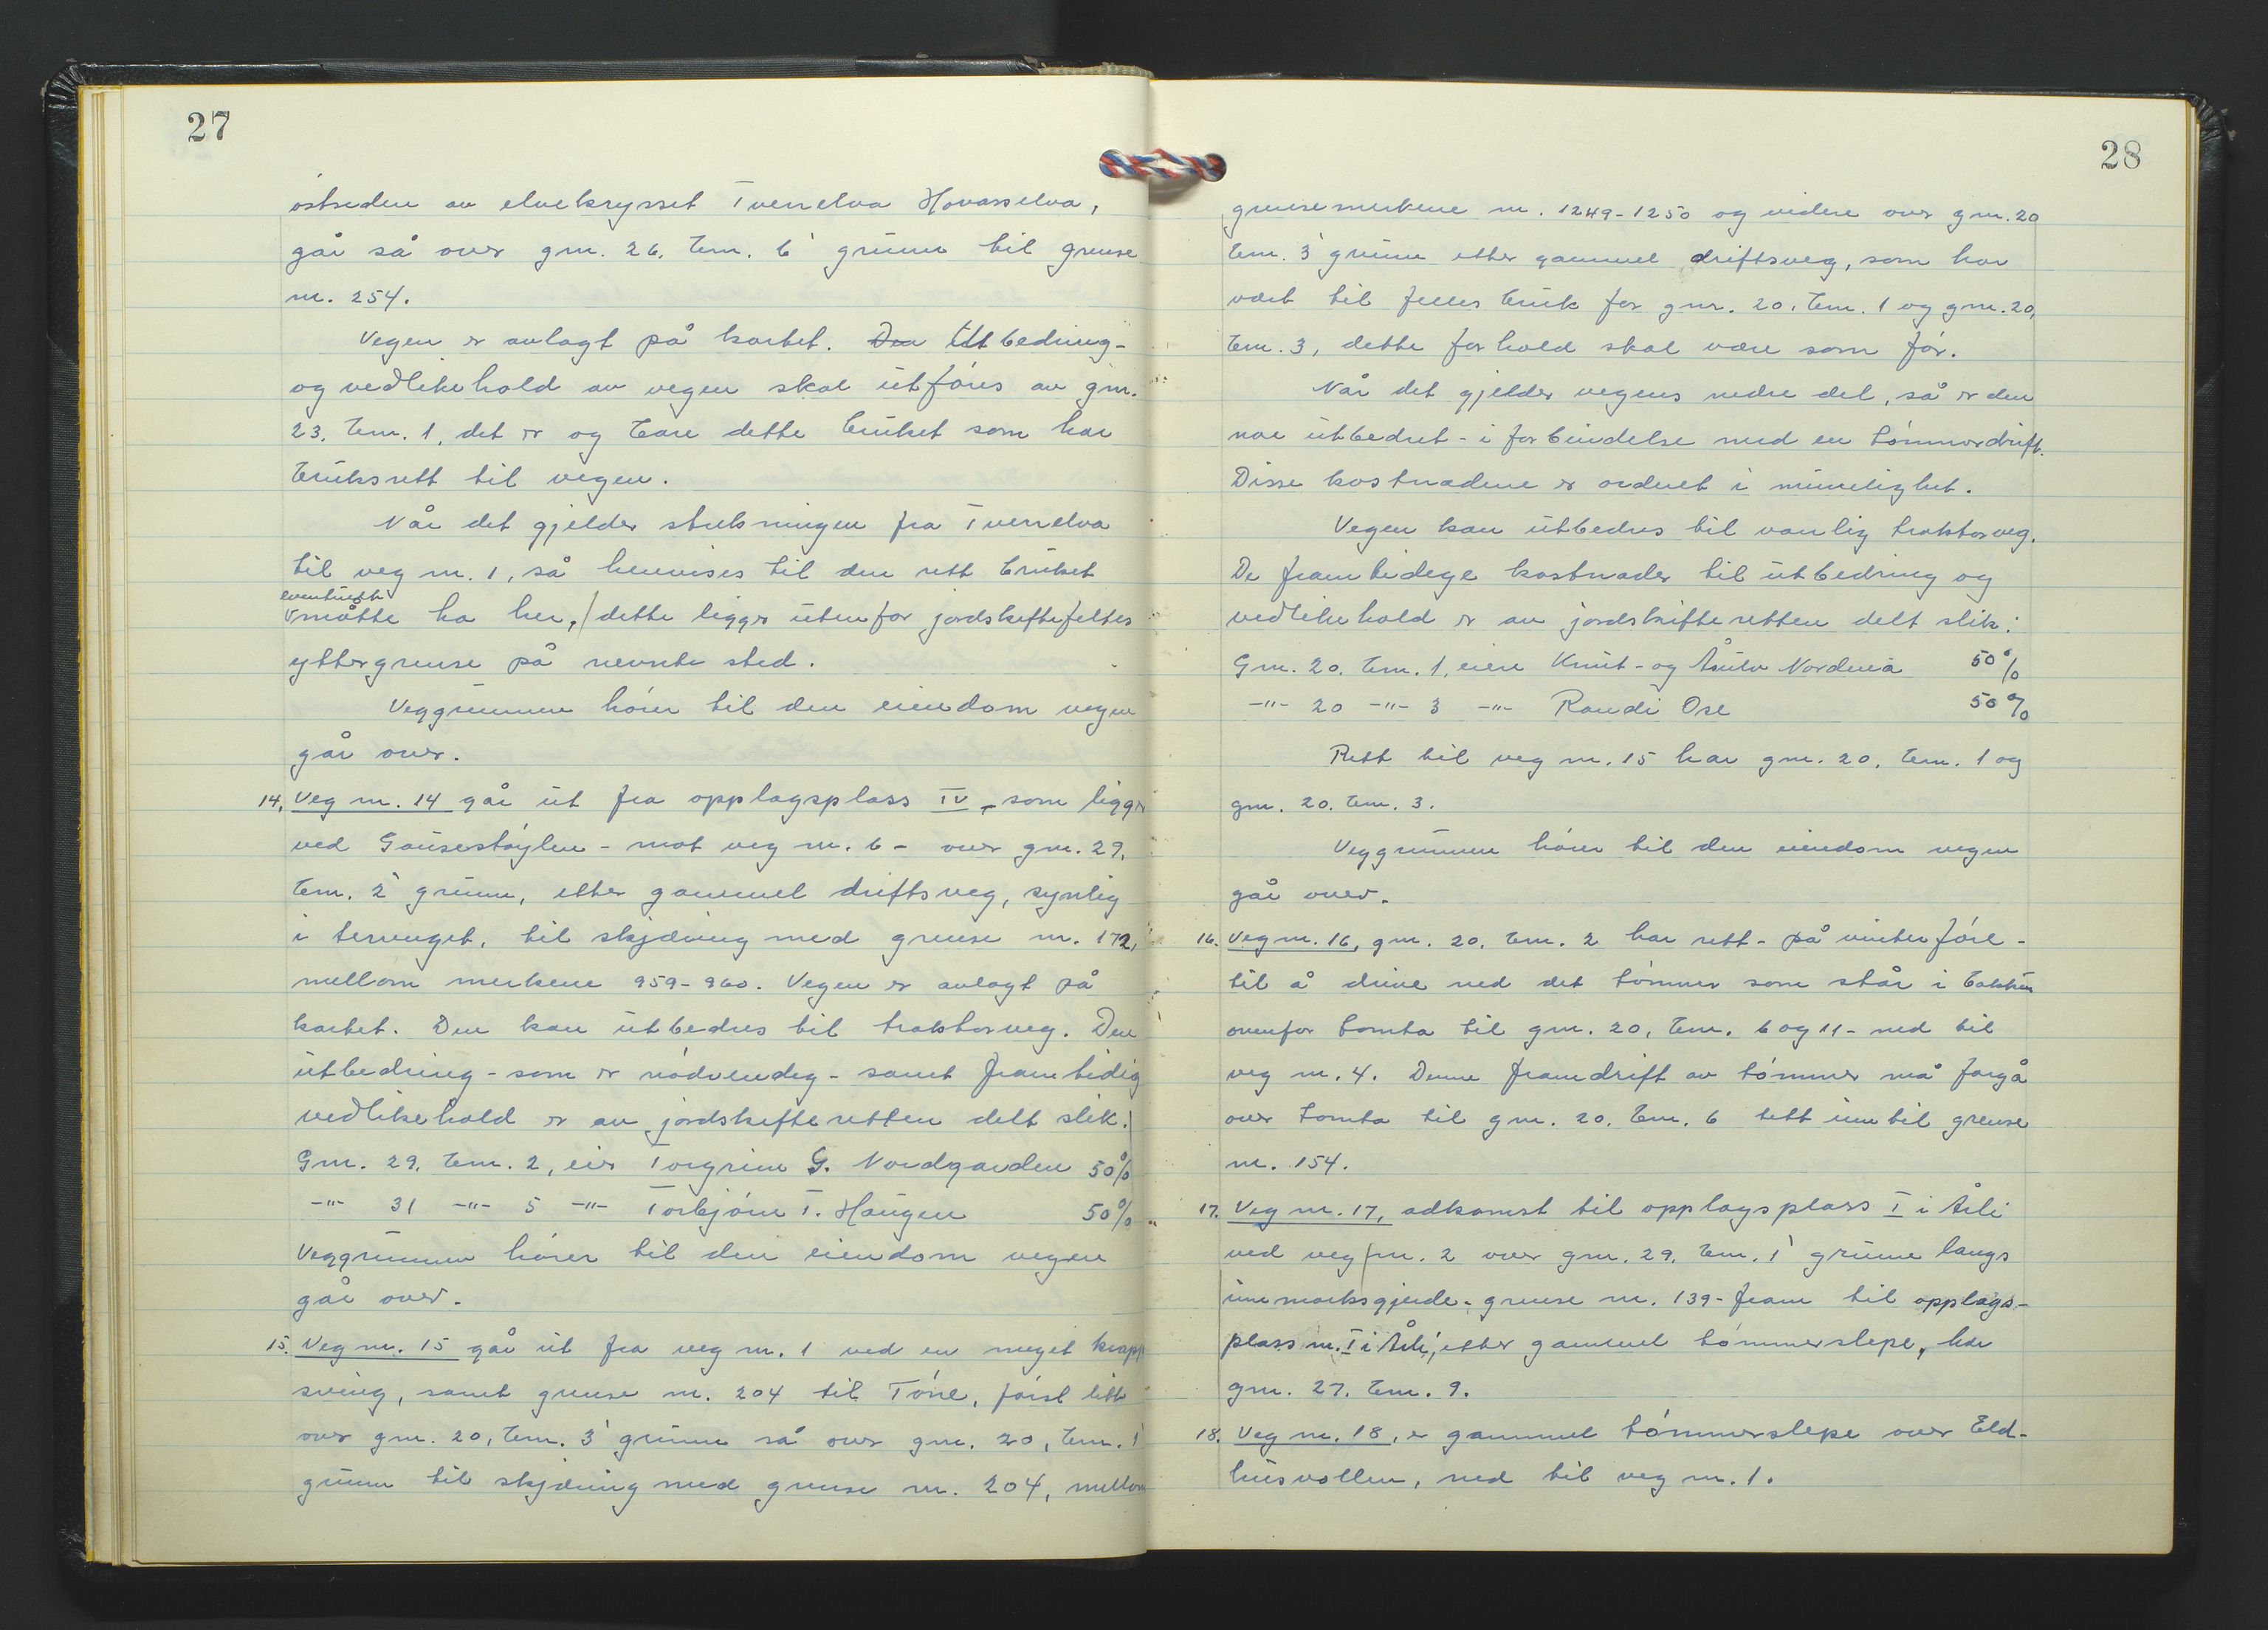 27
østsiden av elvekrysset Tverrelva Hovasselva,
går så over gnr. 26, bnr. 6' grunn til grense
nr. 254.
Vegen er avlagt på kartet. Den Utbedring-
og vedlikehold av vegen skal utføres av gnr.
23, bnr. 1, det er og bare dette bruket som har
bruksrett til vegen.
Når det gjelder strekningen fra Tverrelva
til veg nr. 1, så henvises til den rett bruket
eventuelt
måtte ha her, dette ligger utenfor jordskiftefeltes
yttergrense på nevnte sted.
Veggrunnen hører til den eiendom vegen
går over.
14. Veg nr. 14 går ut fra opplagsplass IV - som ligger
ved Gausestøylen - mot veg nr. 6 - over gnr. 29,
bnr. 2' grunn, etter gammel driftsveg, synlig
i terrenget, til skjæring med grense nr. 172,
mellom merkene 959-960. Vegen er avlagt på
kartet. Den kan utbedres til traktorveg. Den
utbedring - som er nødvendig - samt framtidig
vedlikehold er av jordskifteretten delt slik:
Gnr. 29, bnr. 2, eier Torgrim G. Nordgarden 50%
-"- 31 -"- 5 -"- Torbjørn T. Haugen 50%
Veggrunnen hører til den eiendom vegen
går over.
15. Veg nr. 15 går ut fra veg nr. 1 ved en meget krapp
sving, samt grense nr. 204 til Tøre, først litt
over gnr. 20, bnr. 3' grunn så over gnr. 20, bnr. 1'
grunn til skjæring med grense nr. 204, mellom
28
grensemerkene nr. 1249-1250 og videre over gnr. 20
bnr. 3' grunn etter gammel driftsveg, som har
vært til felles bruk for gnr. 20, bnr. 1 og gnr. 20,
bnr. 3, dette forhold skal være som før.
Når det gjelder vegens nedre del, så er den
noe utbedret - i forbindelse med en tømmerdrift.
Disse kostnadene er ordnet i minnelighet.
Vegen kan utbedres til vanlig traktorveg.
De framtidige kostnader til utbedring og
vedlikehold er av jordskifteretten delt slik:
Gnr. 20, bnr. 1, eiere Knut- og Åsulv Nordenå 50%
-"- 20 -"- 3 -"- Randi Ose 50%
Rett til veg nr. 15 har gnr. 20, bnr. 1 og
gnr. 20, bnr. 3.
Veggrunnen hører til den eiendom vegen
går over.
16. Veg nr. 16, gnr. 20, bnr. 2 har rett - på vinterføre -
til å drive ned det tømmer som står i bakken
ovenfor tomta til gnr. 20, bnr. 6 og 11 - ned til
veg nr. 4. Denne framdrift av tømmer må foregå
over tomta til gnr. 20, bnr. 6 tett inn til grense
nr. 154.
17. Veg nr. 17, adkomst til opplagsplass I i Åsli
ved veg nr. 2 over gnr. 29, bnr. 1' grunn langs
innmarksgjerde - grense nr. 139 - fram til opplags-
plass nr. I i Åsli, etter gammel tømmerslepe, har
gnr. 27, bnr. 9.
18. Veg nr. 18, er gammel tømmerslepe over Eld-
husvollen, ned til veg nr. 1.